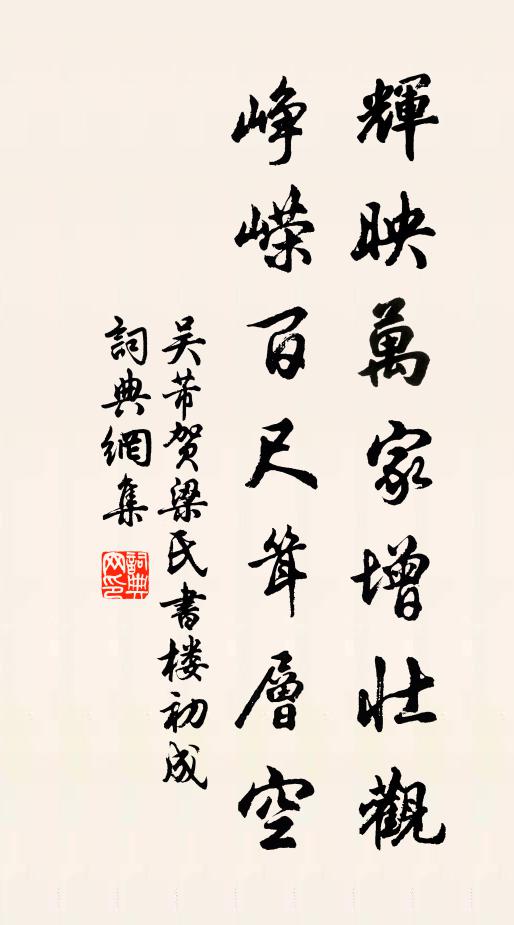 輝映萬家增壯觀
峥嶸百尺聳層空
吴芾贺梁氏書楼初成
詞典網集
詞典网印